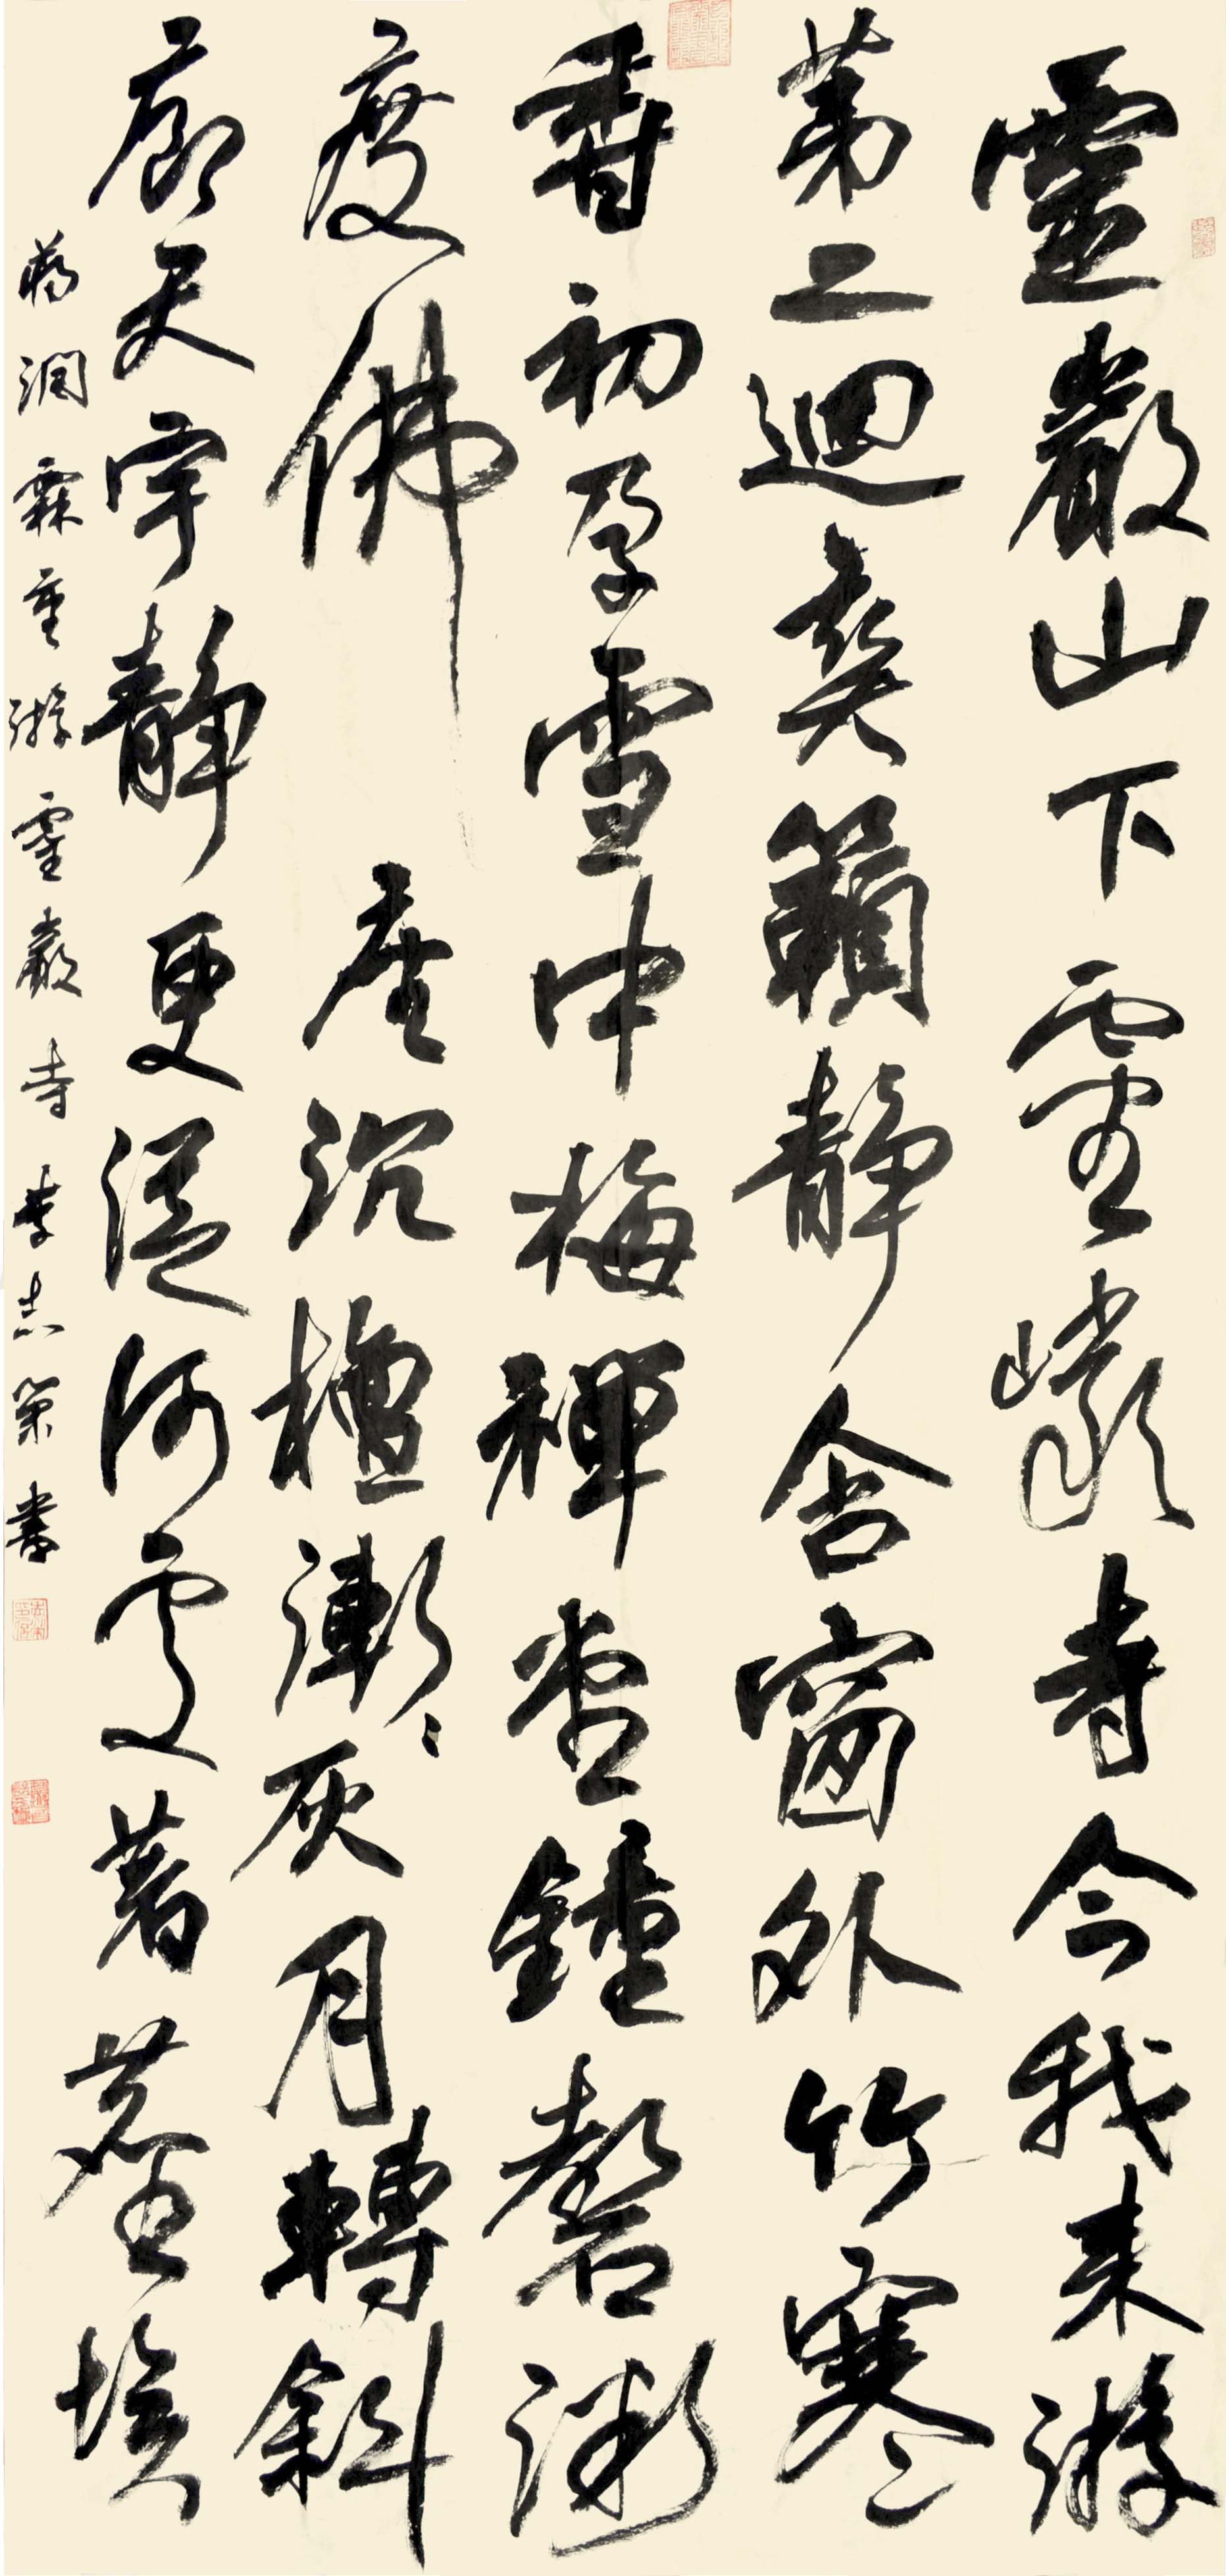 靈巖山下靈巖寺今我來游
第二迴爽籟靜含窗外竹寒
香初孕雪中梅禪堂鐘磬
度佛座沉檀漸漸灰月轉斜
廊天宇靜更從何處著塵埃
蔣潤霖重游靈巖寺李志策書